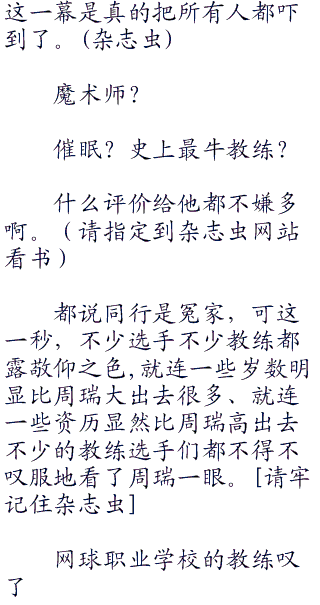 这一幕是真的把所有人都吓
到了。(杂志虫)
魔术师?
催眠?史上最牛教练?
什么评价给他都不嫌多
啊。(请指定到杂志虫网站
看书)
都说同行是冤家,可这
一秒,不少选手不少教练都
露敬仰之色,就连一些岁数明
显比周瑞大出去很多、就连
一些资历显然比周瑞高出去
不少的教练选手们都不得不
叹服地看了周瑞一眼。[请牢
记住杂志虫]
网球职业学校的教练叹
了